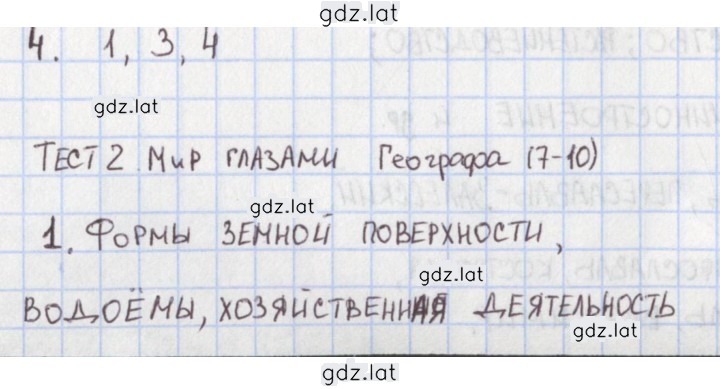 gdz.lat
4. 1, 3, 4
gdz.lat
ТЕСТ 2 МиР ГЛАЗАМИ Географа (7-10)
gdz.lat
1. ФОРМЫ ЗЕМНОЙ ПОВЕРХНОСТИ,
gdz.lat
ВОДОЁМЫ, ХОЗЯЙСТВЕННАЯ ДЕЯТЕЛЬНОСТЬ
gdz.lat
gdz.lat